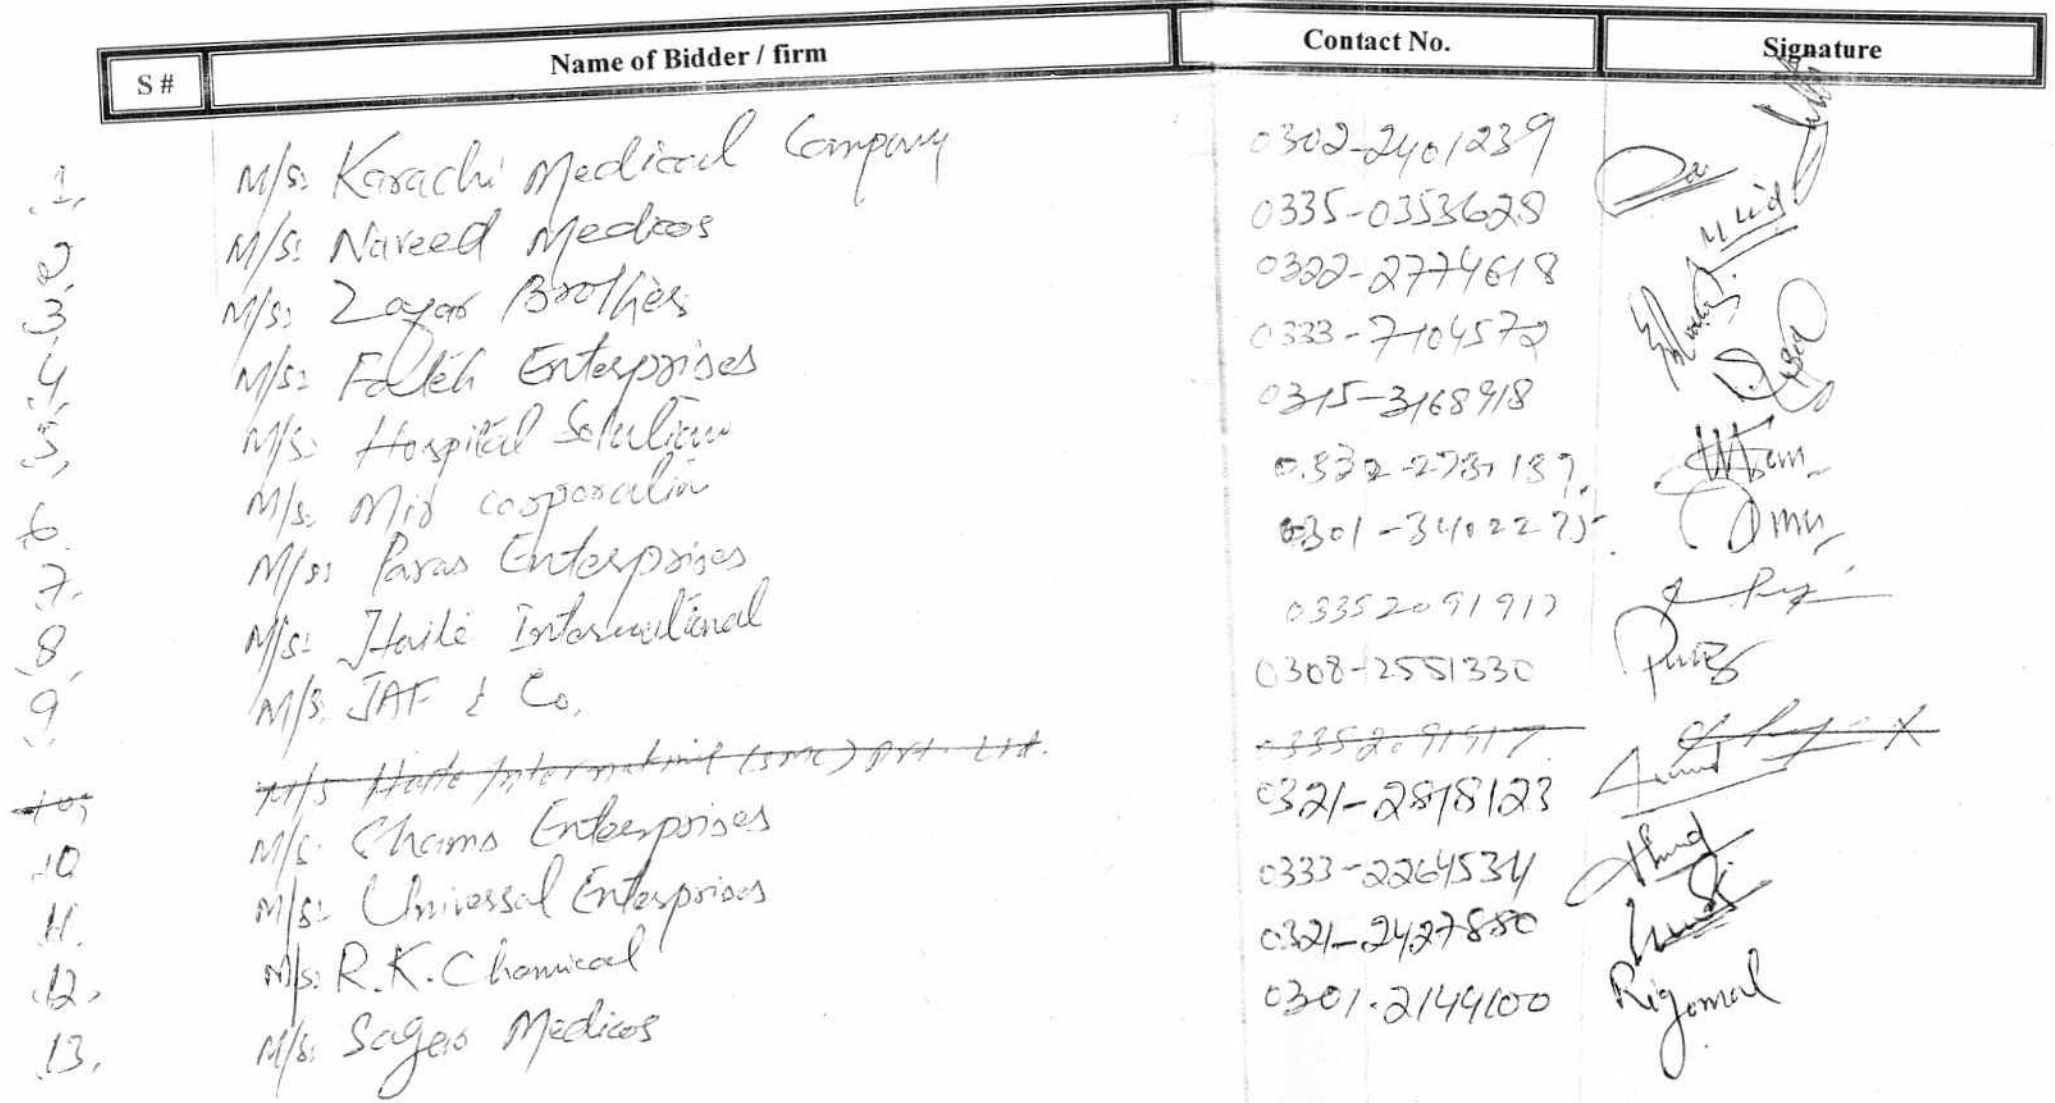 S # Name of Bidder / firm Contact No. Signature
1, M/s: Karachi Medical Company 0302-2401239
2, M/s: Naveed Medicos 0335-0353628
3, M/s: Zafar Brothers 0322-2774618
4, M/s: Fateh Enterprises 0333-7104572
5, M/s: Hospital Solution 0315-3168918
6. M/s. Mir corporation
7, M/s: Paras Enterprises
8, M/s: Haite International 03352091917
9, M/s. JAF & Co, 0308-2551330
10, M/s Haite International (SMC) Pvt. Ltd. 03352091917
10 M/s: Shams Enterprises 0321-2878123
11. M/s: Universal Enterprises 0333-2264534
12, M/s: R.K. Chamical 0321-2427880
13, M/s: Sagar Medicos 0301-2149100